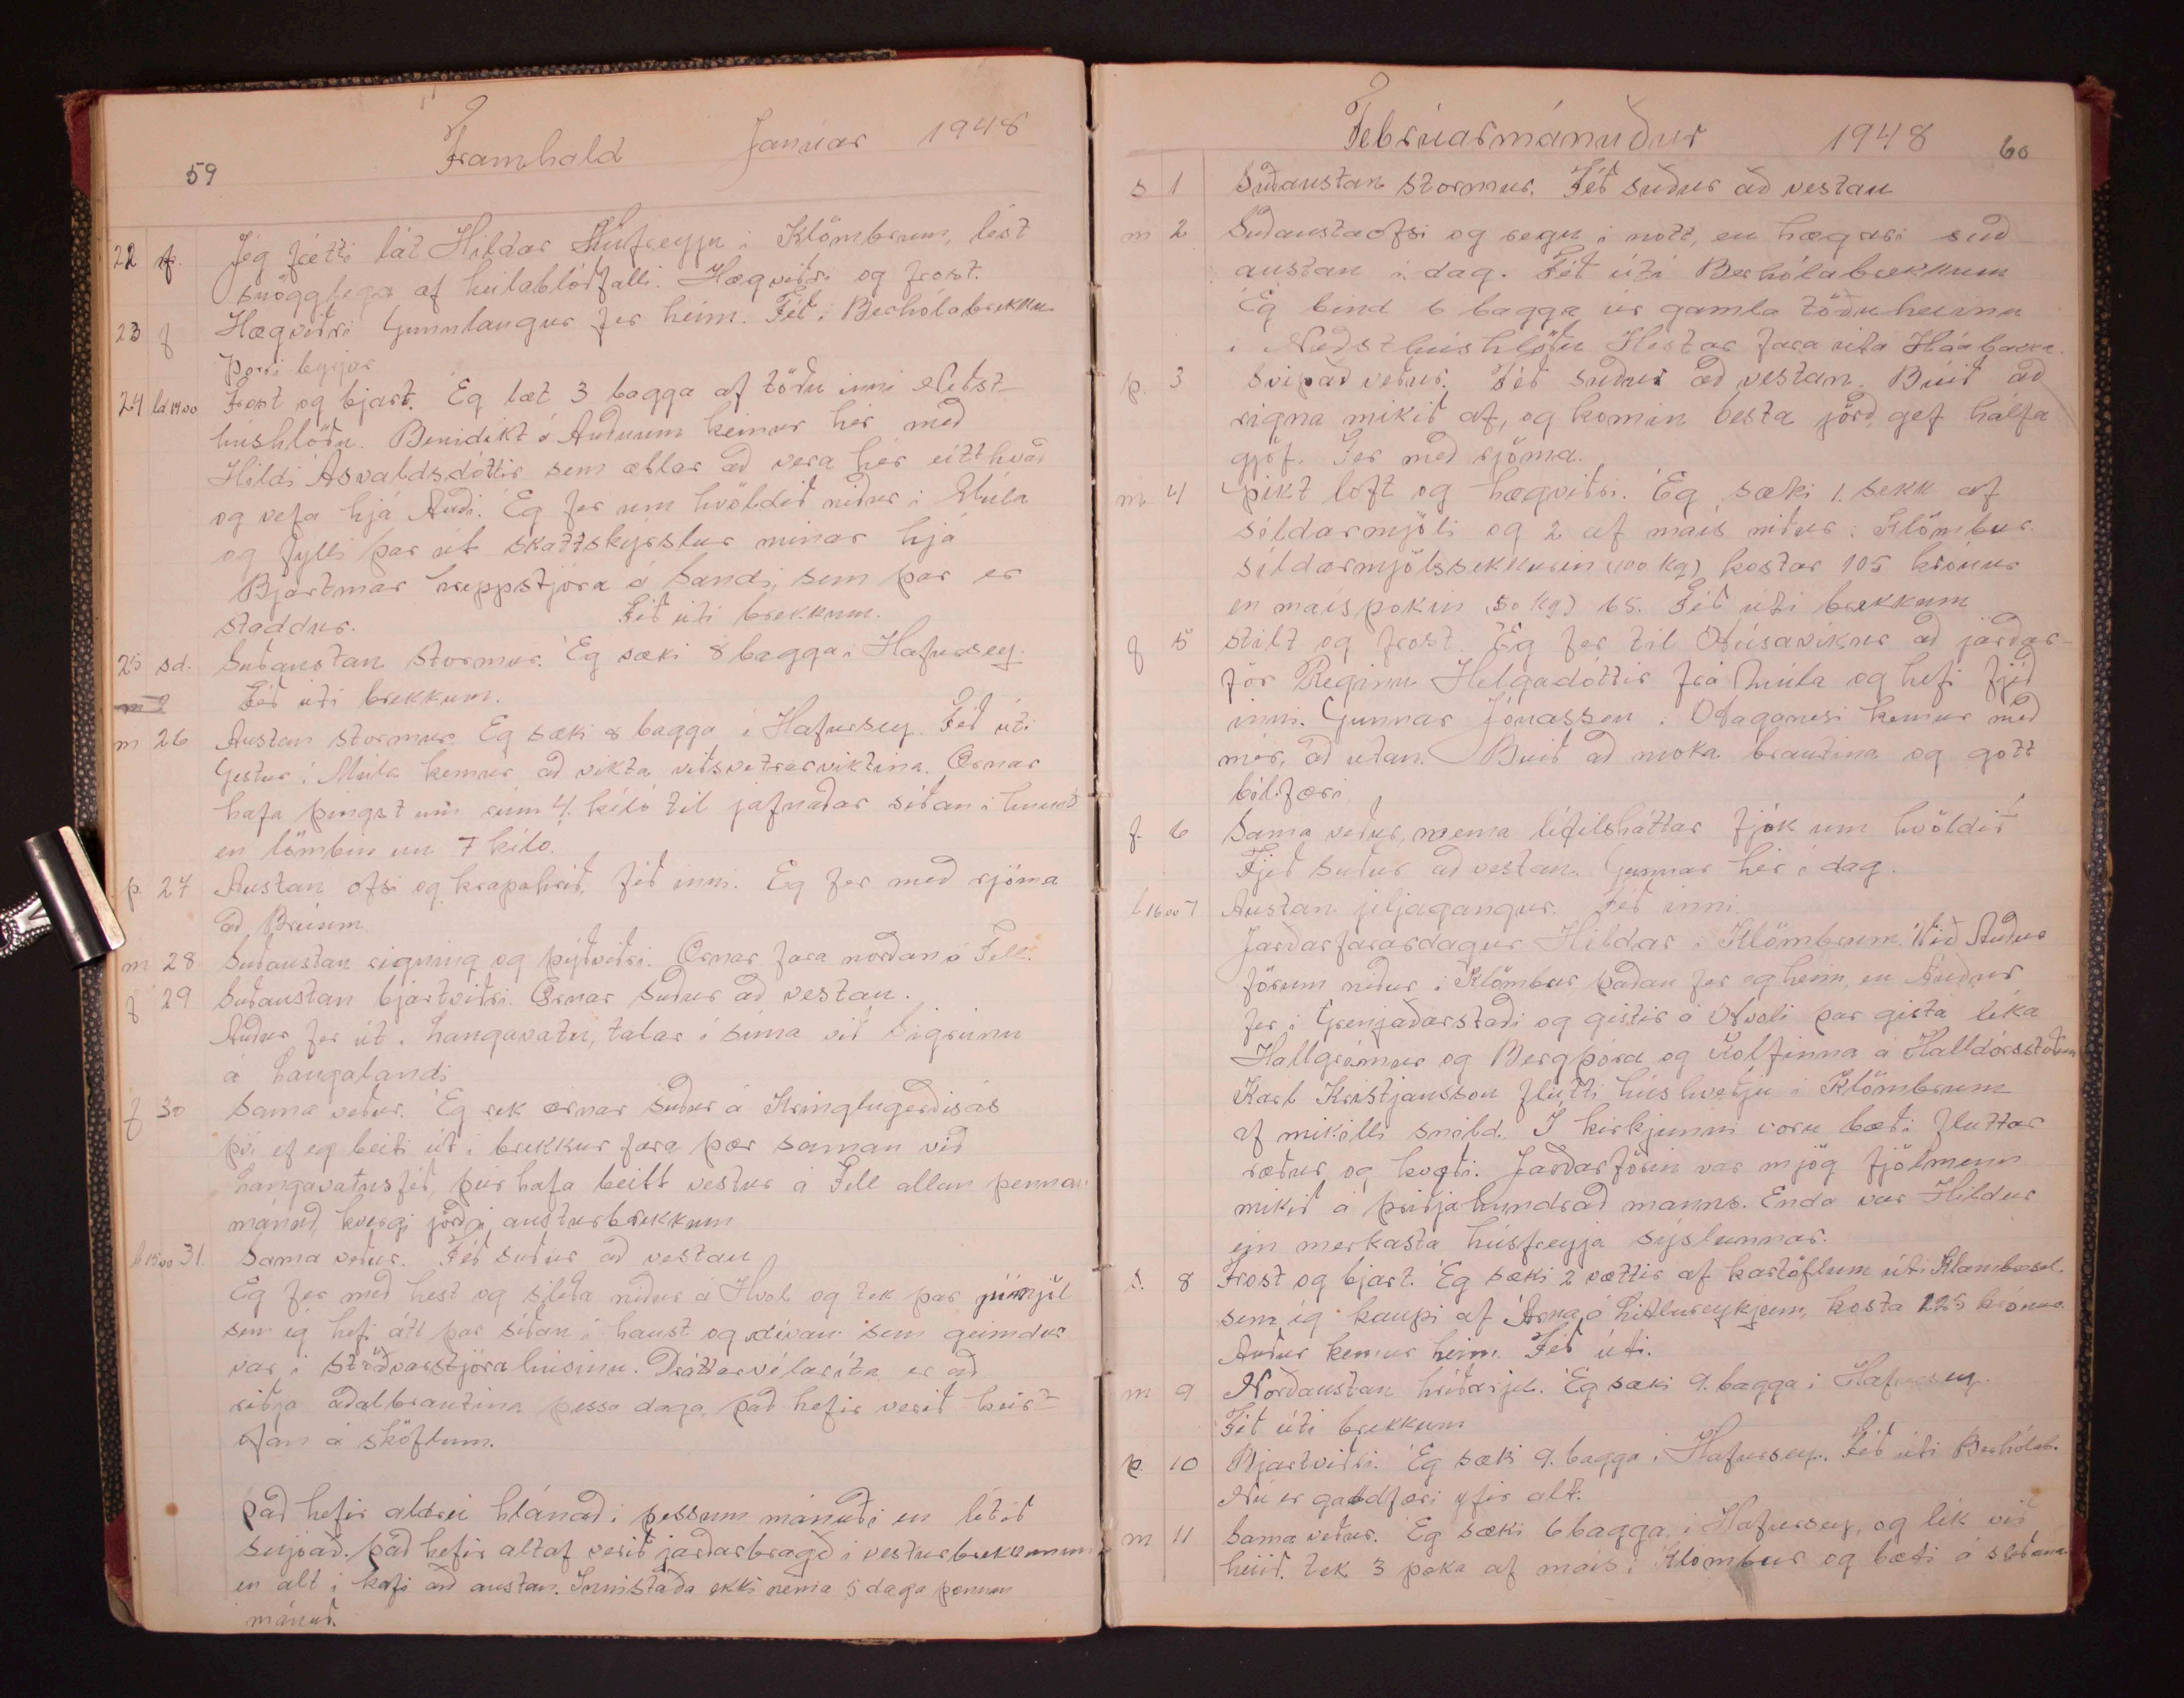 59 Framhald Janúar 1948
22 f. Jeg frétti lát Hildar Húsfreyju i Klömbrum, lést
snögglega af heilablóðfalli. Hægviðri og frost.
23 f Hægviðri Gunnlaugur fer heim. Féð i Berhólabrekku
Þorri byrjar
24 ld 14.00 Frost og bjart. Ég læt 3 bagga af töðu inni Neðst-
húshlöðu. Benidikt á Auðnum kemur hér með
Hildi Ásvaldsdóttir sem ætlar að vera hér eitthvað
og vefa hjá Auði. Ég fer um kvöldið niður i Múla
og fylli þar út skattskýrslur minar hjá
Bjartmar hreppstjóra á Sandi, sem þar er
staddur. Féð úti brekkum.
25 sd. Suðaustan stormur. Ég sæki 8 bagga i Hafursey.
Féð úti brekkum.
m 26 Austan stormur. Eg sæki 8 bagga i Hafursey. Féð úti
Gestur i Múla kemur að vikta viðsvetrarviktina. Ærnar
hafa þingst um rúm 4. kíló til jafnaðar síðan i
en lömbin um 7 kíló.
þ. 27 Austan ofsi og krapahríð, féð inni. Eg fer með rjóma
að Brúum
m 28 Suðaustan rigning og þýðviðri. Ærnar fara norðan á Fell.
f 29 Suðaustan bjartviðri. Ærnar suður að vestan.
Auður fer út i Langavatn, talar i síma við Sigrúnu
á Laugalandi
f 30 Sama veður. Ég rek ærnar suður á Kringlugerðisás
því ef eg beiti út i brekkur fara þær saman við
Langavatnsféð, þeir hafa beitt vestur á Fell allan þennan
mánuð, hvergi jörð i austurbrekkum
l 15.00 31. Sama veður. Féð suður að vestan
Eg fer með hest og sleða niður á Hvol og tek þar
sem ég hefi átt þar síðan i haust og dívan sem geimdur
var i stöðvarstjóra húsinu. Dráttarvélaríta er að
riðja aðalbrautina þessa daga, það hefir verið keirt
ofan á sköflum.
Það hefir aldrei hlánað i þessum mánuði en lítið
snjóað. Það hefir altaf verið jarðarbragð i vesturbrekkunum
en alt i kafi að austan. Innistaða ekki nema 5 daga þennan
mánuð.
Febrúarmánuður 1948 60
s 1 Suðaustan stormur. Féð suður að vestan
m 2 Suðaustaofsi og regn i nótt, en hægari suð
austan i dag. Féð úti Berhólabrekkum
Ég bind 6 bagga ur gamla töðu heiinu
i Neðsthúshlöðu. Hestar fara úta Háabakka.
þ. 3 Svipað veður. Féð suður að vestan. Búið að
rigna mikið af, og komin besta jörð, gef hálfa
gjöf. Fer með rjóma.
m 4 Þikt loft og hægviðri. Ég sæki 1. sekk af
síldarmjöli og 2 af maís niður i Klömbur.
síldarmjölssekkurin (100 kg) kostar 105 krónur
en maíspokin (50 kg) 65. Féð úti brekkum
f 5 Stilt og frost. Ég fer til Húsavíkur að jarðar-
för Reginu Helgadóttir frá Múla og hefi fjéð
inni. Gunnar Jónasson i Haganesi kemur með
mér, að utan. Búið að moka brautina og gott
bílfæri.
f. 6 Sama veður, nema lítilsháttar fjúk um kvöldið
Fjéð suður að vestan. Gunnar hér i dag.
l 16.00 7 Austan jeljagangur. Féð inni.
Jarðarfarardagur Hildar i Klömbrum. Við Auður
förum niður i Klömbur þaðan fer eg heim, en Auður
fer i Grenjaðarstaði og gistir á Hvoli þar gista líka
Hallgrímur og Bergþóra og Kolfinna á Halldórsstöðum
Karl Kristjansson flutti húskveðju i Klömbrum
af mikilli snild. I kirkjunni voru bæði fluttar
ræður og kvæði. Jarðarförin var mjög fjölmenn
mikið á þriðjahundrað manns. Enda var Hildur
ein merkasta húsfreyja sýslunnar.
s. 8 Frost og bjart. Ég sæki 2 vættir af kartöflum úti Klambrasel.
sem ég kaupi af Árna á Litlureykjum, kosta 225 krónur.
Auður kemur heim. Féð úti.
m 9 Norðaustan hríðarjel. Ég sæki 9. bagga i Hafursey.
Féð úti brekkum
þ. 10 Bjartviðri. Ég sæki 9. bagga i Hafursey. Féð úti Berhólab.
Nú er gaddfæri yfir alt.
m 11 Sama veður. Ég sæki 6 bagga i Hafursey, og lík við
heiið. tek 3 poka af maís i Klömbur og bæti á sleðana.